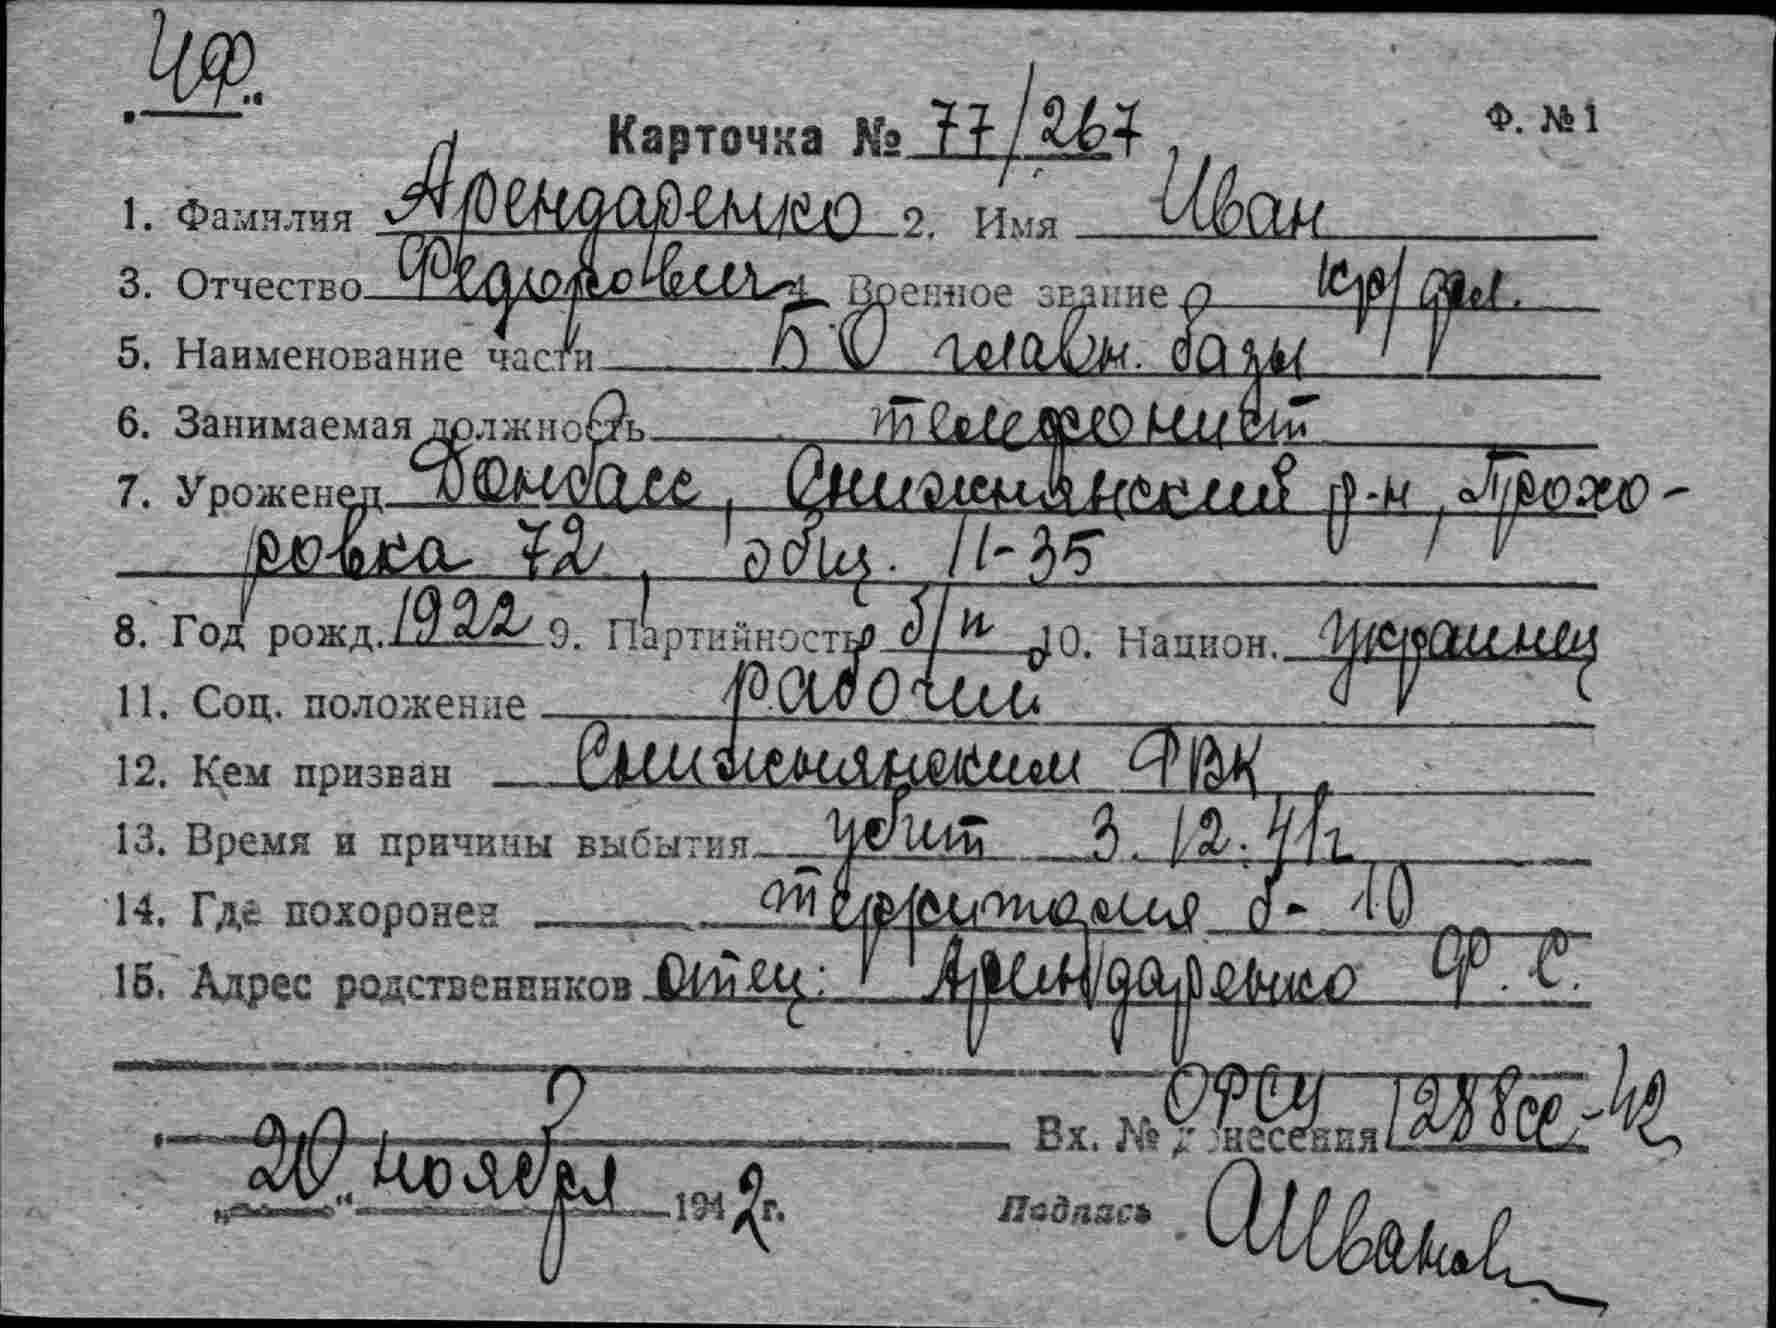 „ЧФ"
Карточка № 77/267 Ф. № 1
1. Фамилия Арендаренко 2. Имя Иван
3. Отчество Федорович 4. Военное звание кр/фл.
5. Наименование части БО главн. базы
6. Занимаемая должность телефонист
7. Уроженец Донбасс, Снижнянский р-н, Прохо-
ровка 72, общ. 11-35
8. Год рожд. 1922 9. Партийность б/п 10. Национ. украинец
11. Соц. положение рабочий
12. Кем призван Снижнянским РВК
13. Время и причины выбытия убит 3.12.41г
14. Где похоронен территория б-10
15. Адрес родственников отец: Арендаренко Ф. С.
Вх. № донесения ОРСУ 1288сс-42
„20" ноября 1942 г. Подпись АИванов